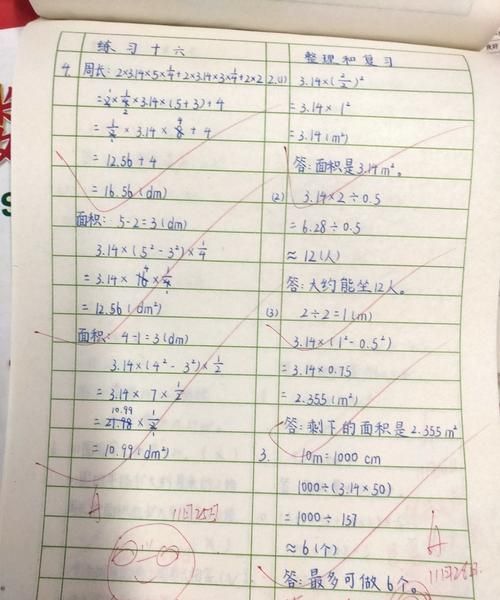 练习十六
4. 周长: 2×3.14×5×1/4+2×3.14×3×1/4+2×2
=2×1/4×3.14×(5+3)+4
=1/2×3.14×8+4
=12.56+4
=16.56(dm)
面积: 5-2=3(dm)
3.14×(5²-3²)×1/4
=3.14×16×1/4
=12.56(dm)
面积: 4-1=3(dm)
3.14×(4²-3²)×1/2
=3.14×7×1/2
10.99
=21.98×1/2
=10.99(dm²)
A 11月25日
整理和复习
2.(1) 3.14×(2/2)²
=3.14×1²
=3.14(m²)
答:面积是3.14m²。
(2) 3.14×2÷0.5
=6.28÷0.5
≈12(人)
答:大约能坐12人。
(3) 2÷2=1(m)
3.14×(1²-0.5²)
=3.14×0.75
=2.355(m²)
答:剩下的面积是2.355m²
3. 10m=1000cm
1000÷(3.14×50)
=1000÷157
≈6(个)
答:最多可做6个。
A